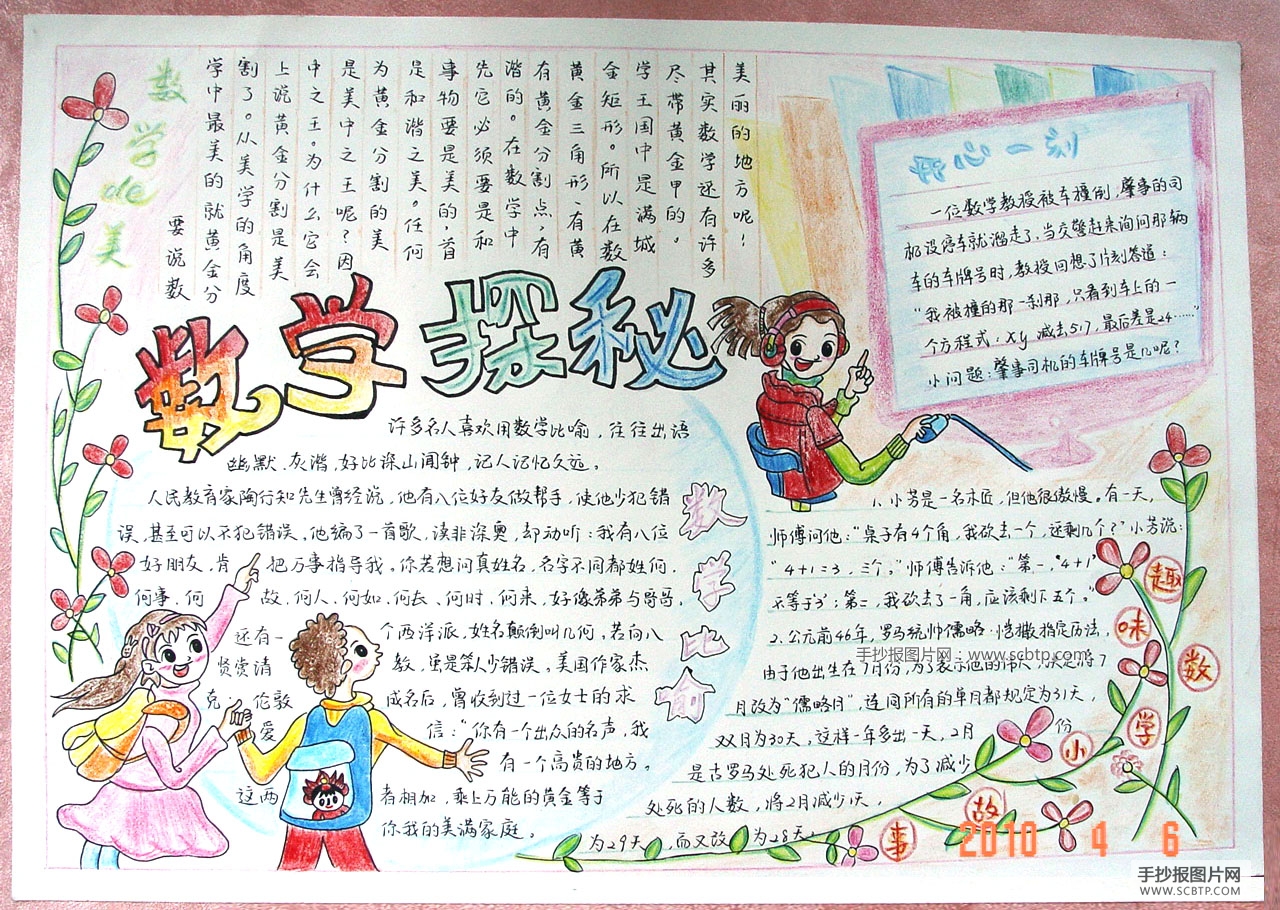 数学de美
要说数
学中最美的就黄金分
割了。从美学的角度
上说黄金分割是美
中之王。为什么它会
是美中之王呢？因
为黄金分割的美
是和谐之美。任何
事物要是美的，首
先它必须要是和
谐的。在数学中
有黄金分割点，有
黄金三角形、有黄
金矩形。所以在数
学王国中是满城
尽带黄金甲的。
其实数学还有许多
美丽的地方呢！
开心一刻
一位数学教授被车撞倒，肇事的司
机没停车就溜走了。当交警赶来询问那辆
车的车牌号时，教授回想了片刻答道：
“我被撞的那一刹那，只看到车上的一
个方程式：xy减去517，最后差是24……”
小问题：肇事司机的车牌号是几呢？
数学探秘
数学比喻
许多名人喜欢用数学比喻，往往出语
幽默、灰谐，好比深山闻钟，记人记忆久远。
人民教育家陶行知先生曾经说，他有八位好友做帮手，使他少犯错
误，甚至可以不犯错误。他编了一首歌，读非深奥，却动听：我有八位
好朋友，肯把万事指导我。你若想问真姓名，名字不同都姓何。
何事、何故、何人、何如、何去、何时、何来，好像弟弟与哥哥。
还有一个西洋派，姓名颠倒叫几何。若向八
贤常请教，虽是笨人少错误。美国作家杰
克·伦敦成名后，曾收到过一位女士的求
爱信：“你有一个出众的名声，我
有一个高贵的地方。
这两者相加，乘上万能的黄金等于
你我的美满家庭。
1、小芳是一名木匠，但他很傲慢。有一天，
师傅问他：“桌子有4个角，我砍去一个，还剩几个？”小芳说：
“4+1=3，三个。”师傅告诉他：“第一，‘4+1’
不等于‘3’；第二，我砍去了一角，应该剩下五个。”
2、公元前46年，罗马统帅儒略·恺撒指定历法，
由于他出生在7月份，为了表示他的伟大，决定将7
月改为“儒略月”，连同所有的单月都规定为31天，
双月为30天。这样一年多出一天，2月份
是古罗马处死犯人的月份，为了减少
处死的人数，将2月减少1天，
为29天，而又改为28天。
趣味数学小故事
手抄报图片网：www.scbtp.com
2010 4 6
手抄报图片网
WWW.SCBTP.COM